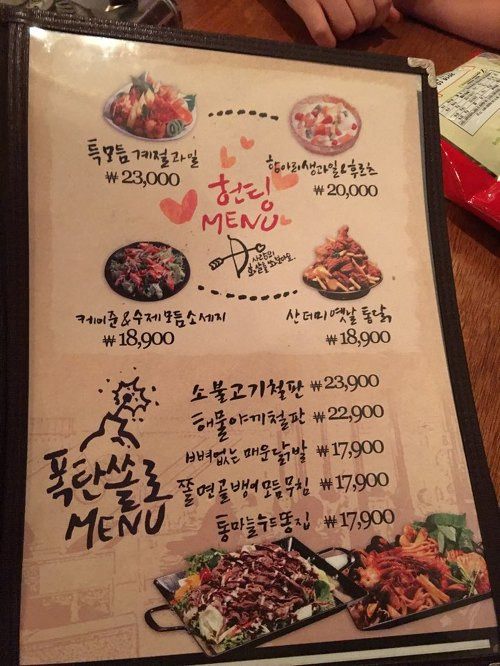 특모듬 계절과일
₩ 23,000
항아리생과일&후르츠
₩ 20,000
헌팅
MENU
사랑의
케이준 & 수제모듬소세지
₩ 18,900
산더미 옛날통닭
₩ 18,900
폭탄쏠로
MENU
소불고기철판 ₩ 23,900
해물야끼철판 ₩ 22,900
뼈없는 매운닭발 ₩ 17,900
쫄면골뱅이모듬무침 ₩ 17,900
통마늘누드똥집 ₩ 17,900